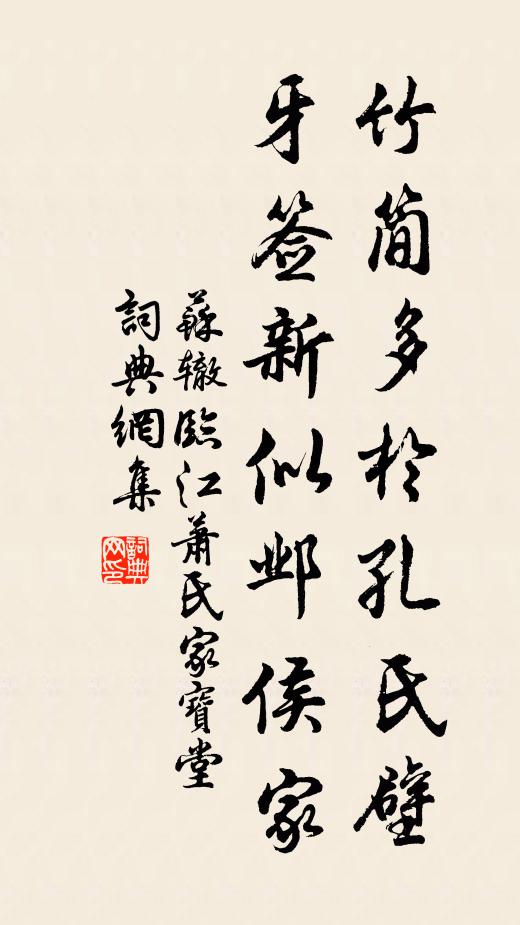 竹简多於孔氏壁
牙签新似邺侯家
蘇辙臨江萧氏家寶堂
詞典網集
詞典网印